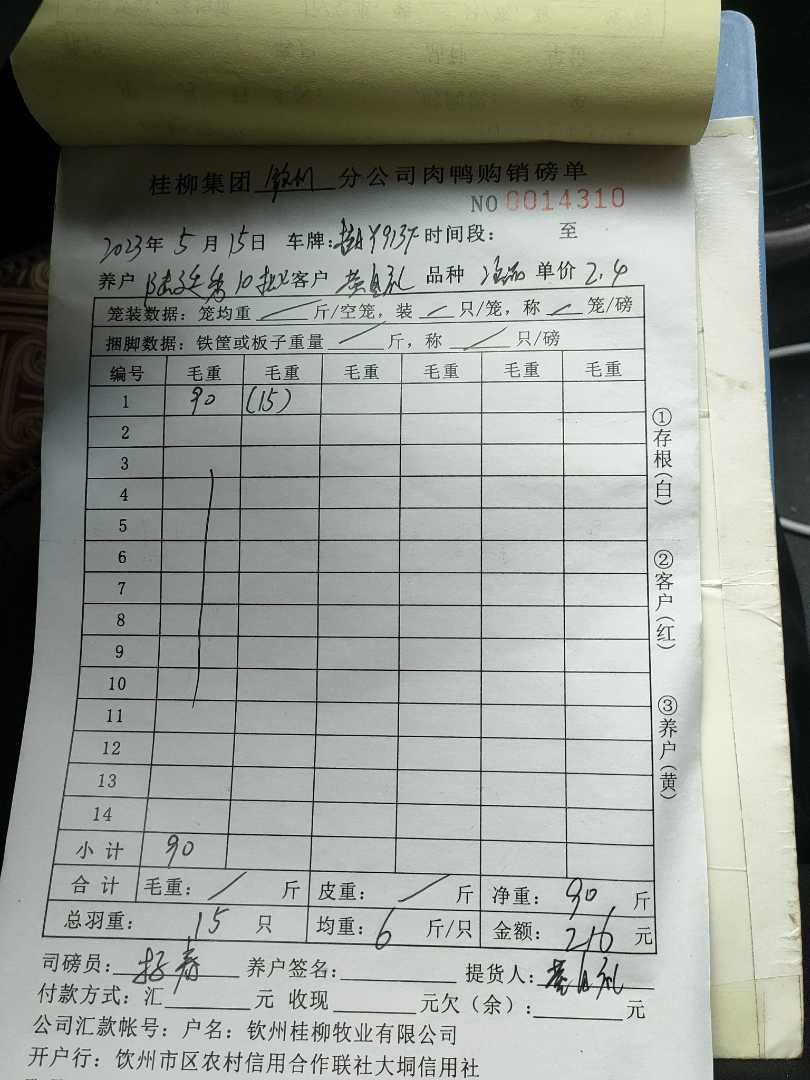 桂柳集团 钦州 分公司肉鸭购销磅单
NO 0014310
2023年 5月 15日 车牌: 时间段: 至
养户 10批 客户 黄自礼 品种 单价 2.4
笼装数据: 笼均重 斤/空笼, 装 只/笼, 称 笼/磅
捆脚数据: 铁筐或板子重量 斤, 称 只/磅
编号 毛重 毛重 毛重 毛重 毛重 毛重
1 90 (15)
2
3
4
5
6
7
8
9
10
11
12
13
14
小计 90
合计 毛重: / 斤 皮重: / 斤 净重: 90 斤
总羽重: 15 只 均重: 6 斤/只 金额: 216 元
司磅员: 养户签名: 提货人: 黄自礼
付款方式: 汇 元 收现 元欠(余): 元
公司汇款帐号: 户名: 钦州桂柳牧业有限公司
开户行: 钦州市区农村信用合作联社大垌信用社
①存根(白)
②客户(红)
③养户(黄)